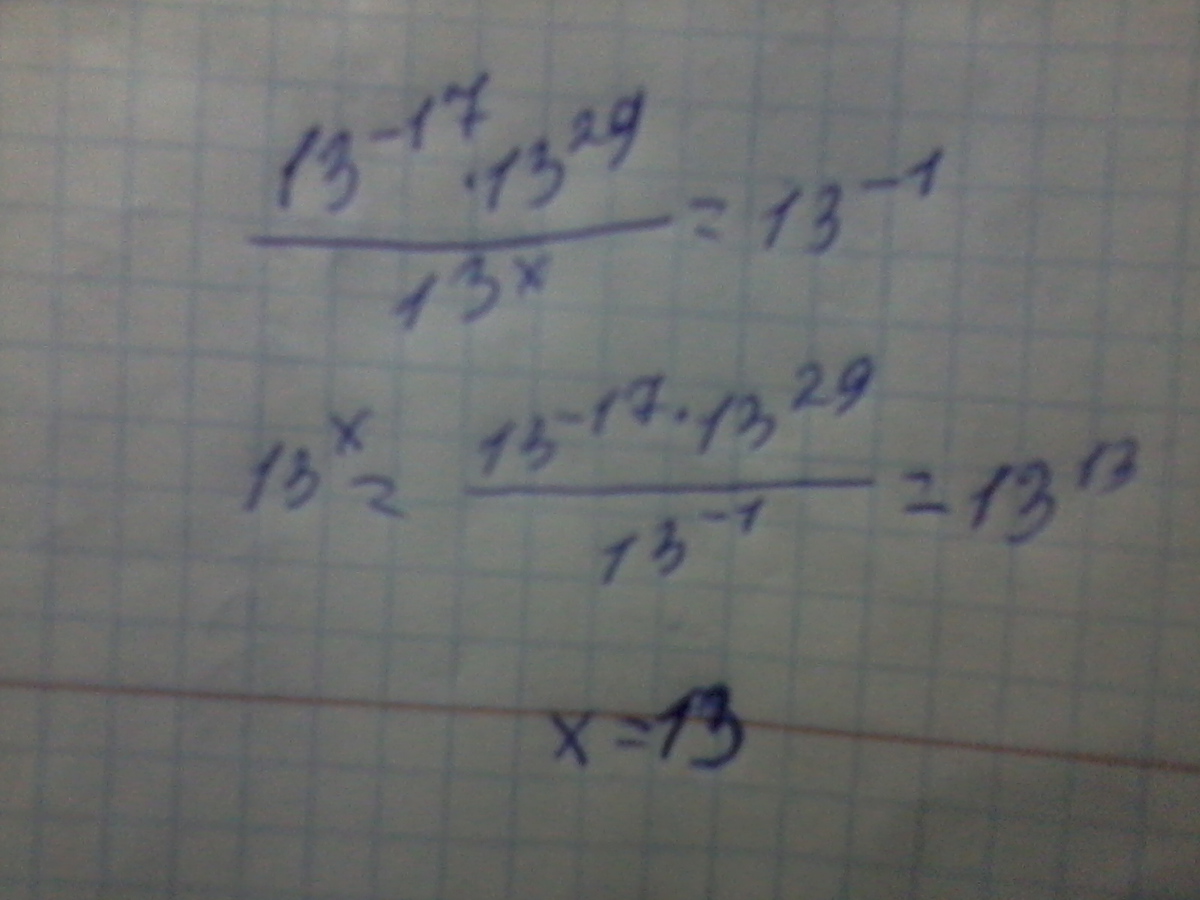 13⁻¹⁷ · 13²⁹ / 13ˣ = 13⁻¹
13ˣ = 13⁻¹⁷ · 13²⁹ / 13⁻¹ = 13¹³
x = 13